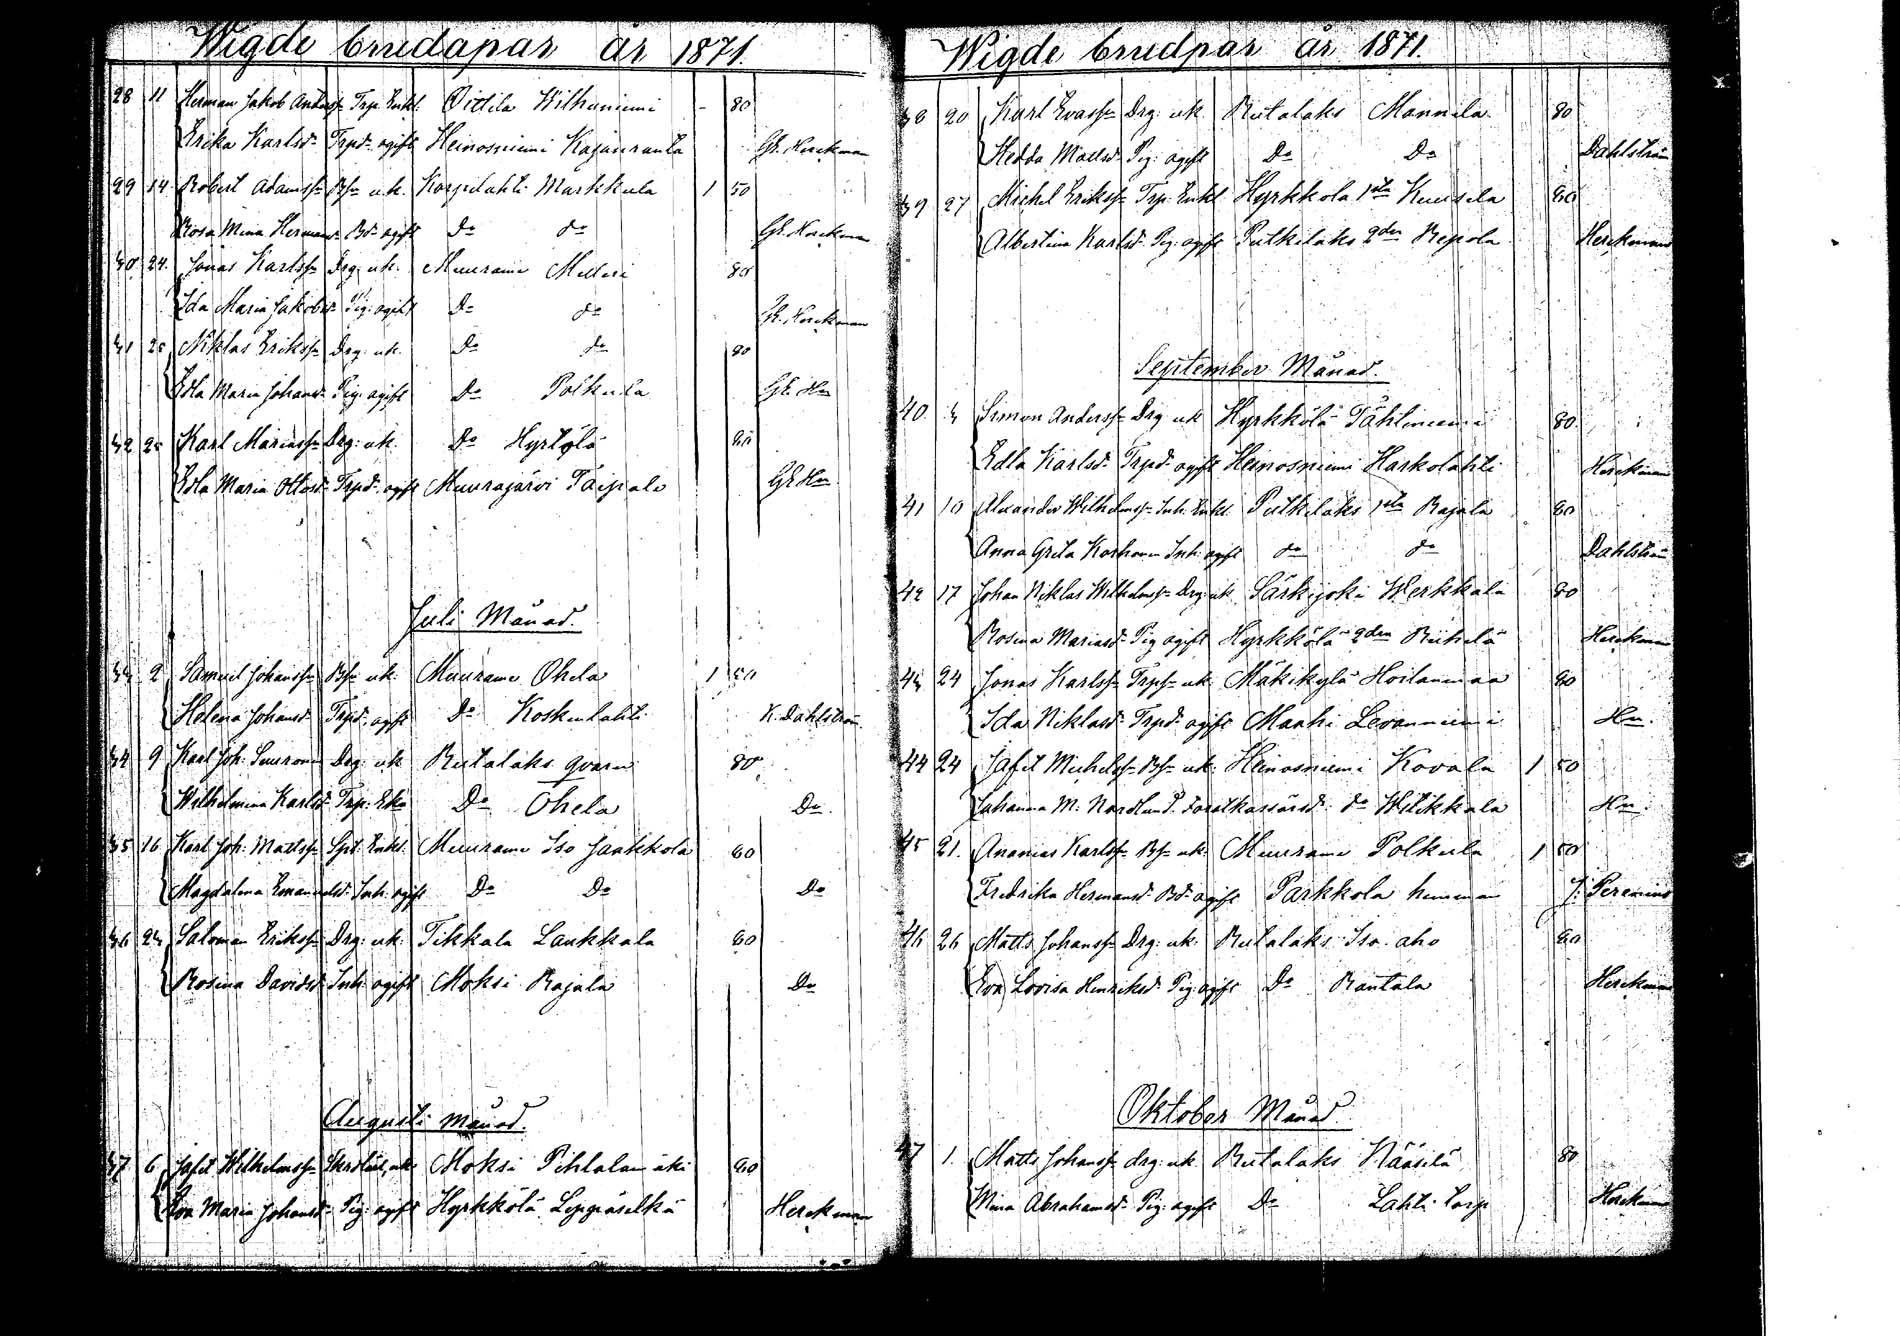 Wigde brudapar år 1871.
28 11 Herman Jakob Anderss: Trp. Enkl. Oittila Wilhuniemi - 80
Erika Karlsd: Trpd: ogift Heinosniemi Kajanranta Gh. Herckman
29 14. Robert Adamss: Bs: u.k. Korpilahti Markkula 1 50
Rosa Mina Hermansd: Bd: ogift Do do Gh. Herckman
30 24. Jonas Karlss: Drg: uk. Muurame Mella 80
Ida Maria Jakobsd: Pig: ogift Do do Gh. Herckman
31 25 Niklas Erikss: Drg: uk. Do do 80
Edla Maria Johansd: Pig: ogift Do Polkula Gh. Hn
32 25 Karl Mariass: Drg: uk. Do Hyrtölä 80
Edla Maria Ottosd: Trpd: ogift Muurajärvi Taipale Gh Hn
Juli Månad.
33 2 Samuel Johanss: Bs: uk. Muurame Ohela 1 50
Helena Johansd: Trpd: ogift Do Koskenlahti K. Dahlström
34 9 Karl Joh: Drg: uk Rutalaks qvarn 80
Wilhelmina Karlsd: Trp: Eka Do Ohela Do
35 16 Karl Joh: Mattss: Enkl: Muurame Iso Jaakkola 60
Magdalena Emanuelsd: Inh: ogift Do Do Do
36 23 Salomon Erikss: Drg: uk. Tikkala Laukkala 60
Rosina Davidsd: Inh: ogift Moksi Rajala Do
Augusti månad.
37 6 Jafet Wilhelmss: uk: Moksi Pihlalamäki 80
Eva Maria Johansd: Pig: ogift Hyrkkölä Leppäselkä Herckman
Wigde brudpar år 1871.
38 20 Karl Evass: Drg: uk. Rutalaks Mannila 80
Hedda Mattsd: Pig: ogift Do Do Dahlström
39 27 Michel Erikss: Trp: Enkl Hyrkkola 1sta Kuusela 80
Albertina Karlsd: Pig: ogift Putkilaks 2den Repola Herckman
September Månad.
40. 3 Simon Anderss: Drg uk Hyrkkölä Tähtiniemi 80
Edla Karlsd: Trpd: ogift Heinosniemi Harkolahti Herckman
41 10 Alexander Wilhelmss: Inh: Enkl. Putkilaks 1sta Rajala 80
Anna Greta Korhonen Inh: ogift do do Dahlström
42 17 Johan Niklas Wilhelmss: Drg: uk. Särkijoki Werkkala 80
Rosina Mariasd: Pig ogift Hyrkkölä 2den Riihelä Herckman
43 24 Jonas Karlss: Trps: uk. Mäkikylä Hoilanmaa 80
Ida Niklasd: Trpd: ogift Maahi Levanniemi Hn.
44 24 Jafet Michelss: Bs: uk: Heinosniemi Kovala 1 50
Johanna M: Nordlund. do Witikkala Hn.
45 21. Ananias Karlss: Bs: uk: Muurame Polkula 1 50
Fredrika Hermansd: Bd: ogift Parkkola hemman J: Perenius
46 26 Matts Johanss: Drg: uk: Rutalaks Iso-aho 80
Eva Lovisa Henriksd: Pig: ogift Do Rantala Herckman
Oktober Månad.
47 1. Matts Johanss: drg: uk. Rutalaks Nääsilä 80
Mina Abrahamsd: Pig: ogift Do Lahti torp Herckman